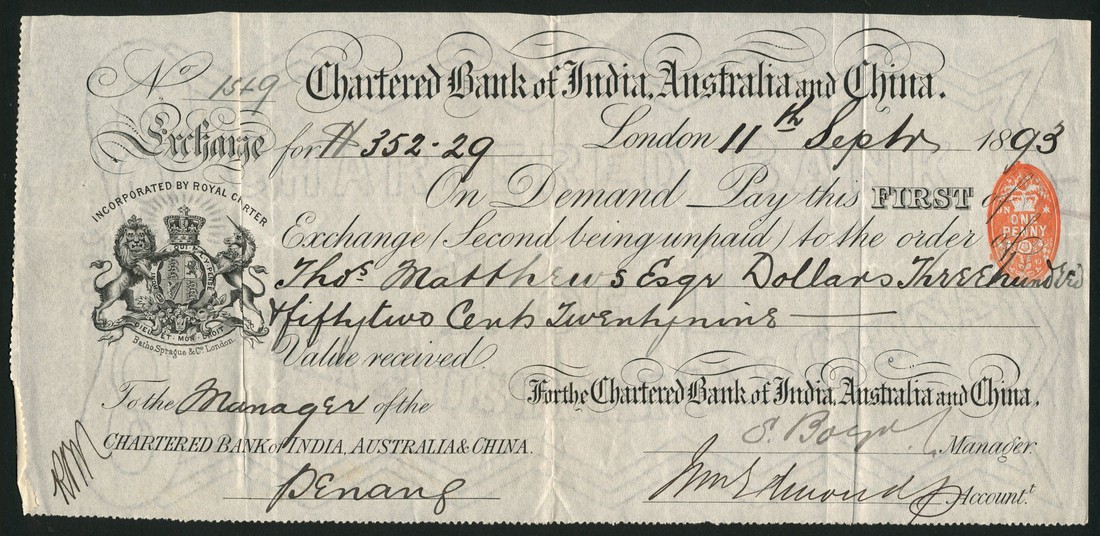 No 1549 Chartered Bank of India, Australia and China.
Exchange for $352.29 London 11th Septr 1893
INCORPORATED BY ROYAL CARTER
On Demand Pay this FIRST of
Exchange (Second being unpaid) to the order of
Thos. Matthews Esqr Dollars Threehundred
& fiftytwo Cents Twentynine
ONE PENNY
DIEU ET MON DROIT
Batho, Sprague & Co. London.
Value received.
For the Chartered Bank of India, Australia and China.
To the Manager of the
Manager.
CHARTERED BANK of INDIA, AUSTRALIA & CHINA.
Penang
Wm Edmonds Accountt.